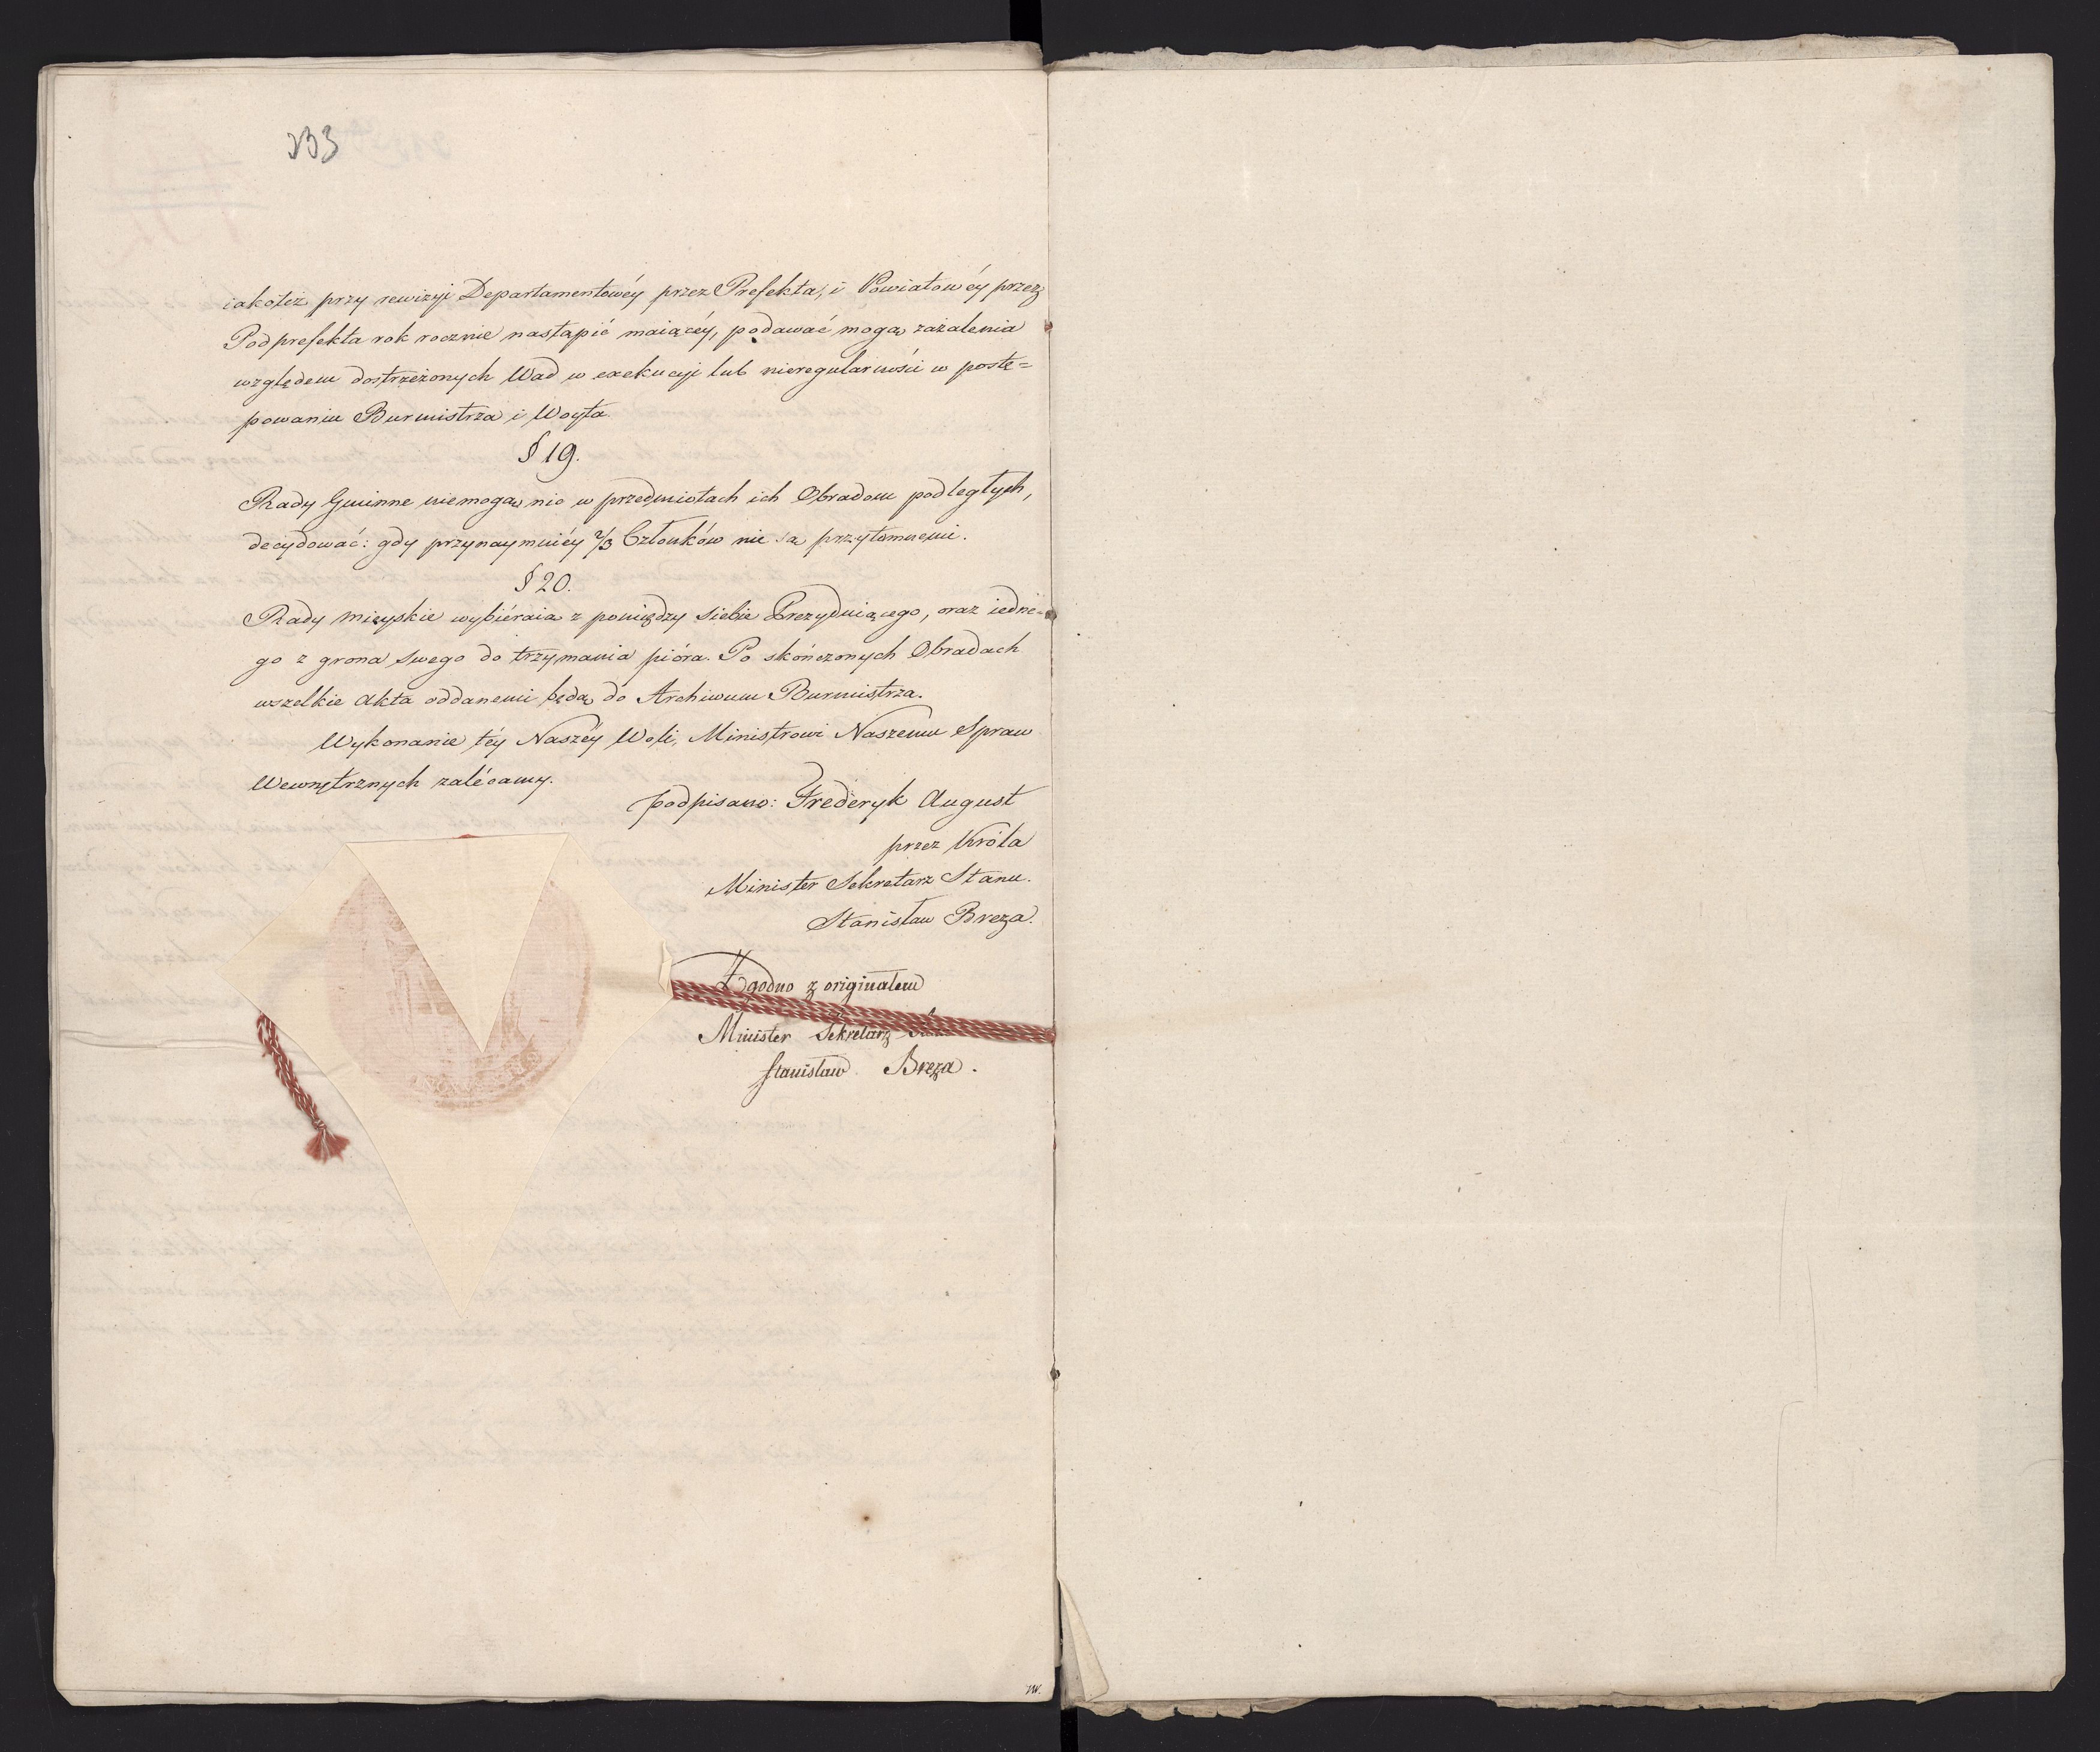 233
iakotéż przy rewizyi Departamentowéy przez Prefekta, i Powiatowéy przez
Podprefekta rok rocznie nastąpić maiącéy, podawać mogą zażalenia
względem dostrzeżonych Wad w exekucyi lub nieregularności w postę=
powaniu Burmistrza i Woyta.
§ 19.
Rady Gminne niemogą nic w przedmiotach ich Obradom podległych,
decydować: gdy przynaymniéy 2/3 Członków nie są przytomnemi.
§ 20.
Rady Mieyskie wybiéraią z pomiędzy siebie Prezyduiącego, oraz iedne=
go z grona swego do trzymania pióra. Po skończonych Obradach
wszelkie Akta oddanemi będą do Archiwum Burmistrza.
Wykonanie téy Naszéy Woli, Ministrowi Naszemu Spraw
Wewnętrznych zalécamy.
podpisano: Frederyk August
przez Króla
Minister Sekretarz Stanu.
Stanisław Breza.
Zgodno z originałem
Minister Sekretarz
Stanisław Breza.